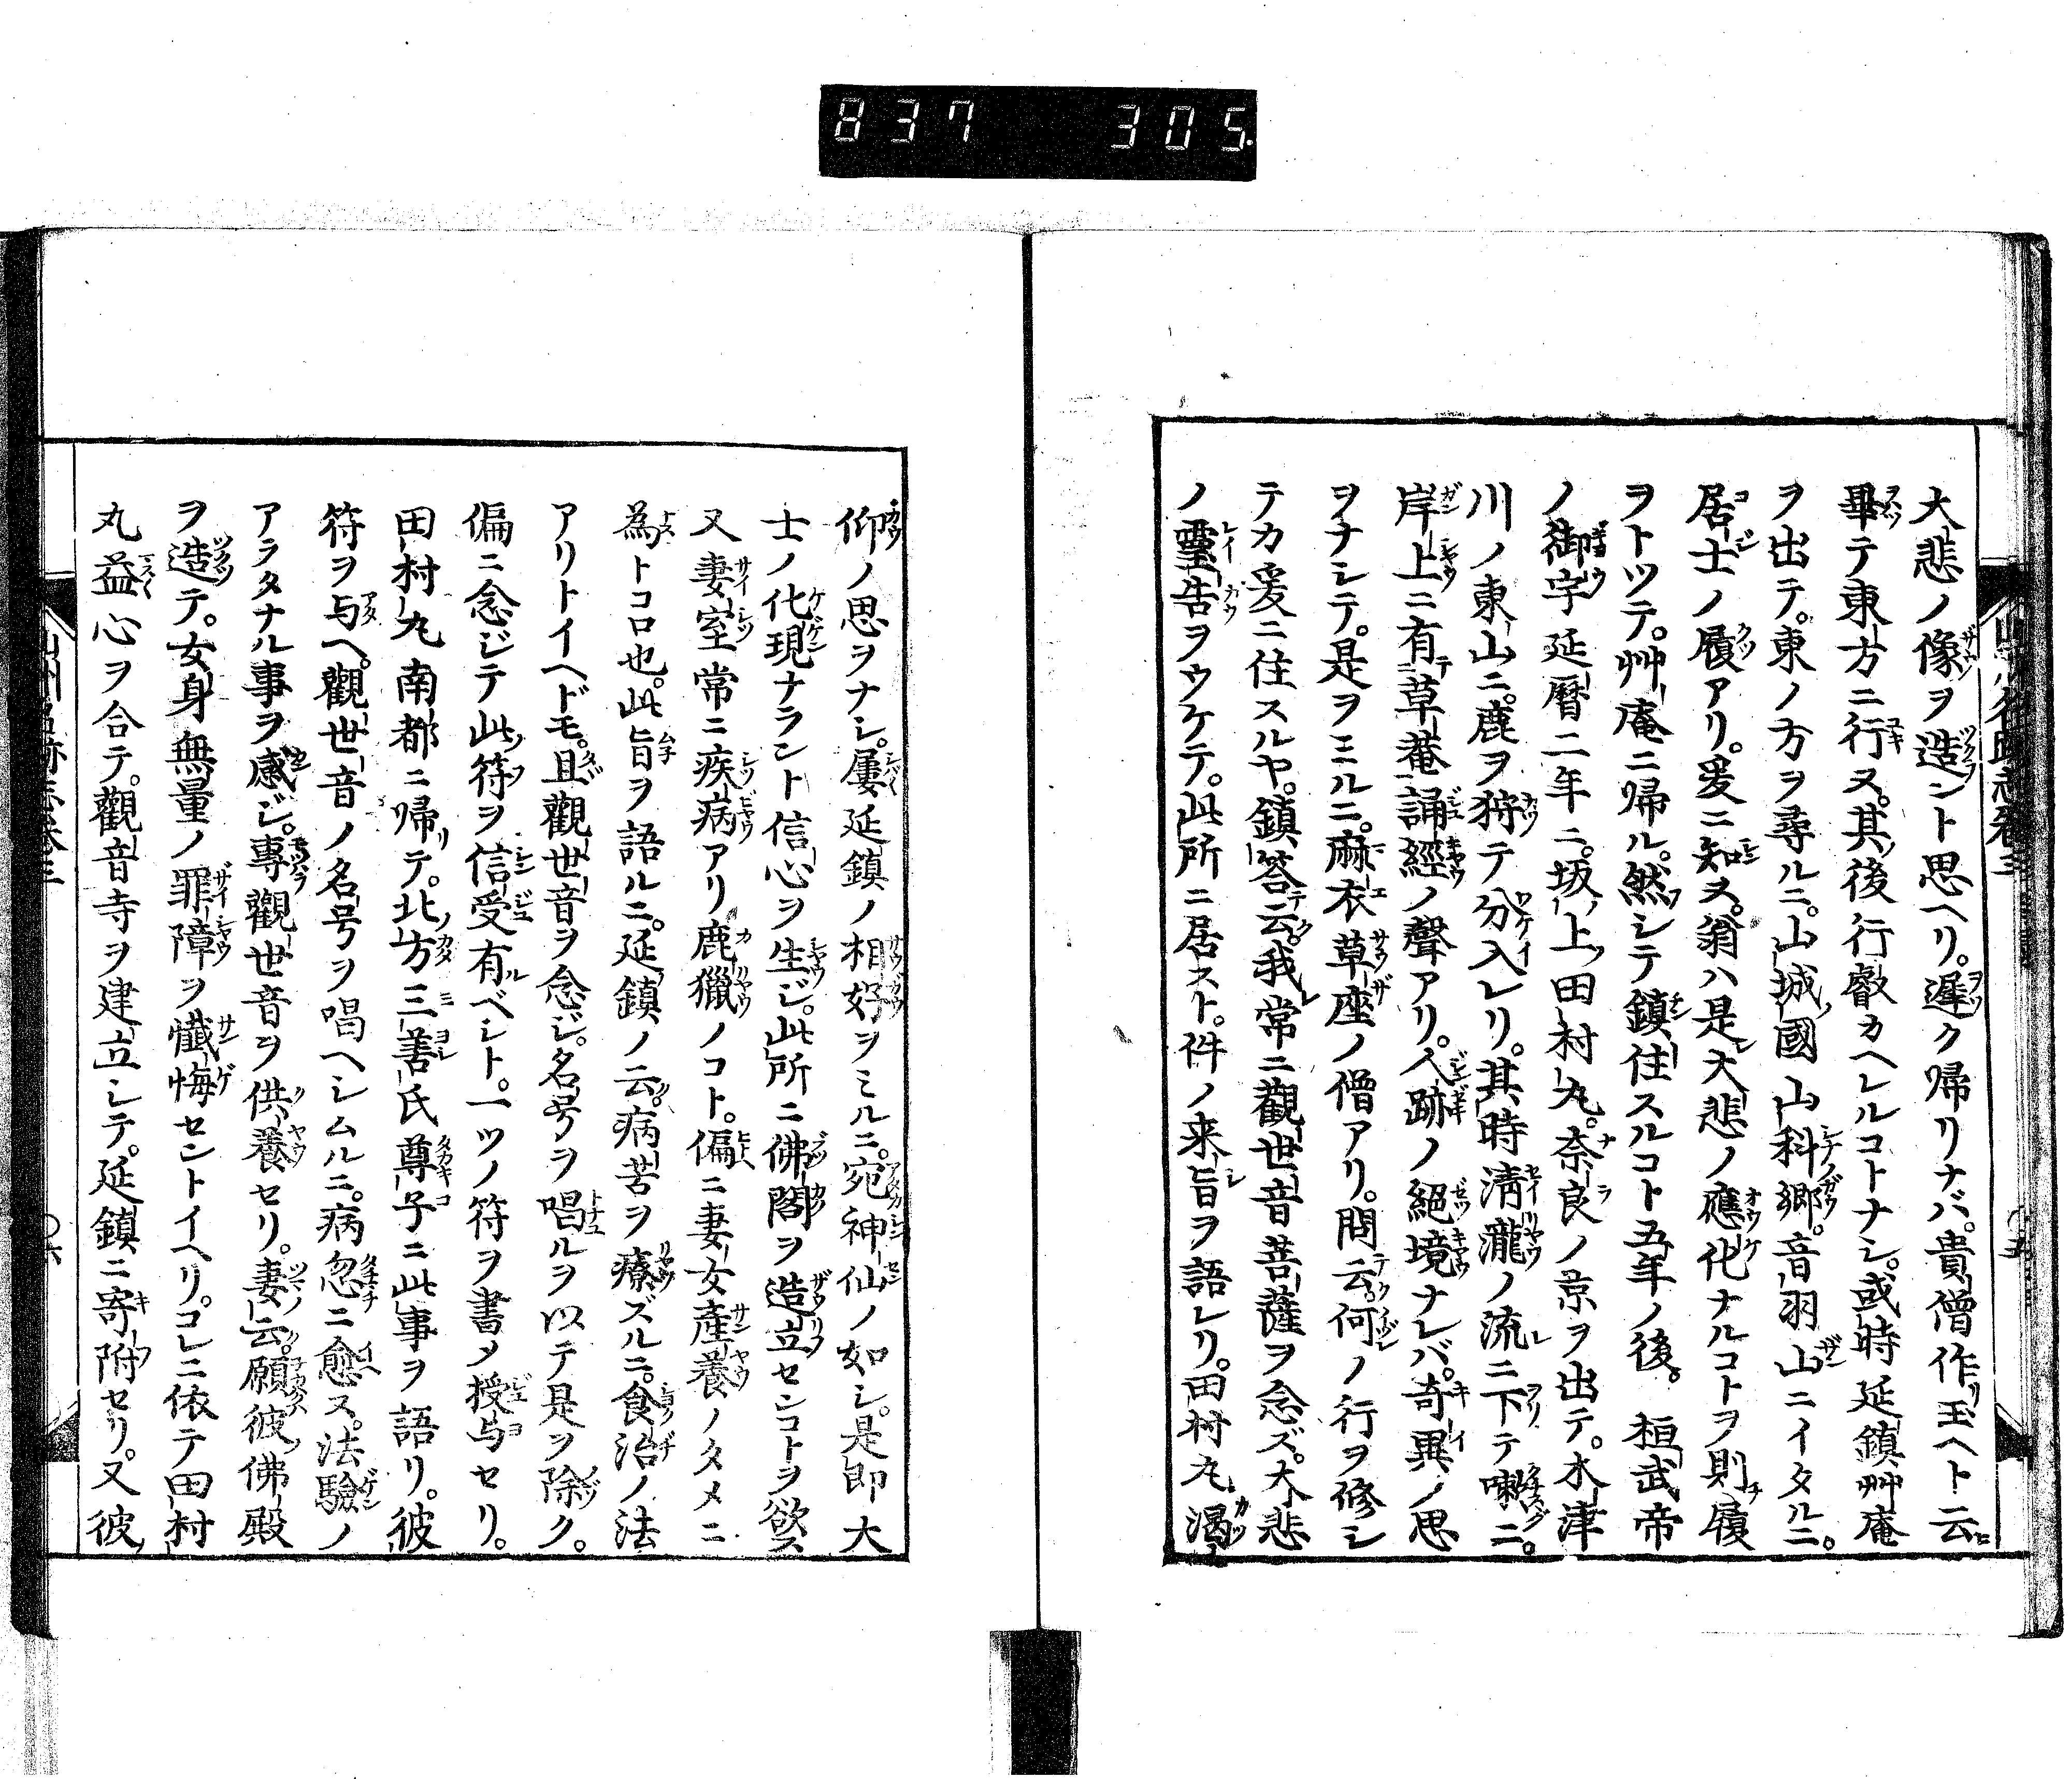 837 305
大悲ノ像ヲ造ント思ヘリ。遅ク帰リナバ。貴僧作リ玉ヘト云
畢テ東方ニ行ヌ。其後行叡カヘレルコトナシ。或時延鎮艸庵
ヲ出テ。東ノ方ヲ尋ルニ。山城國山科郷。音羽山ニイタルニ。
居士ノ履アリ。爰ニ知ヌ。翁ハ是大悲ノ應化ナルコトヲ則履
ヲトツテ。艸庵ニ帰ル。然シテ鎮住スルコト五年ノ後。 桓武帝
ノ御宇延暦二年ニ。坂上田村丸。奈良ノ京ヲ出テ。木津
川ノ東山ニ。鹿ヲ狩テ分入レリ。其時清瀧ノ流レニ下テ嗽ニ。
岸上ニ有テ草菴誦經ノ聲アリ。人跡ノ絕境ナレバ。奇異ノ思
ヲナシテ。是ヲミルニ。麻衣草座ノ僧アリ。問云何ノ行ヲ修シ
テカ爰ニ住スルヤ。鎮答云。我常ニ觀世音菩薩ヲ念ズ。大悲
ノ靈告ヲウケテ。此所ニ居スト。件ノ来旨ヲ語レリ。田村丸渴
仰ノ思ヲナシ。屢延鎮ノ相好ヲミルニ。宛神仙ノ如シ。是即大
士ノ化現ナラント信心ヲ生ジ。此所ニ佛閣ヲ造立センコトヲ欲ス
又妻室常ニ疾病アリ鹿獵ノコト。偏ニ妻女産養ノタメニ
為トコロ也。此旨ヲ語ルニ。延鎮ノ云。病苦ヲ療ズルニ。食治ノ法
アリトイヘドモ。且觀世音ヲ念ジ。名号ヲ唱ルヲ以テ是ヲ除ク。
偏ニ念ジテ此符ヲ信受有ルベシト。一ツノ符ヲ書メ授与セリ。
田村丸南都ニ帰リテ。北方三善氏尊子ニ此事ヲ語リ。彼
符ヲ与ヘ。觀世音ノ名号ヲ唱ヘシムルニ。病忽ニ愈ス。法驗ノ
アラタナル事ヲ感ジ。專觀世音ヲ供養セリ。妻云。願彼佛殿
ヲ造テ。女身無量ノ罪障ヲ懺悔セントイヘリ。コレニ依テ田村
丸益心ヲ合テ。觀音寺ヲ建立シテ。延鎮ニ寄附セリ。又彼